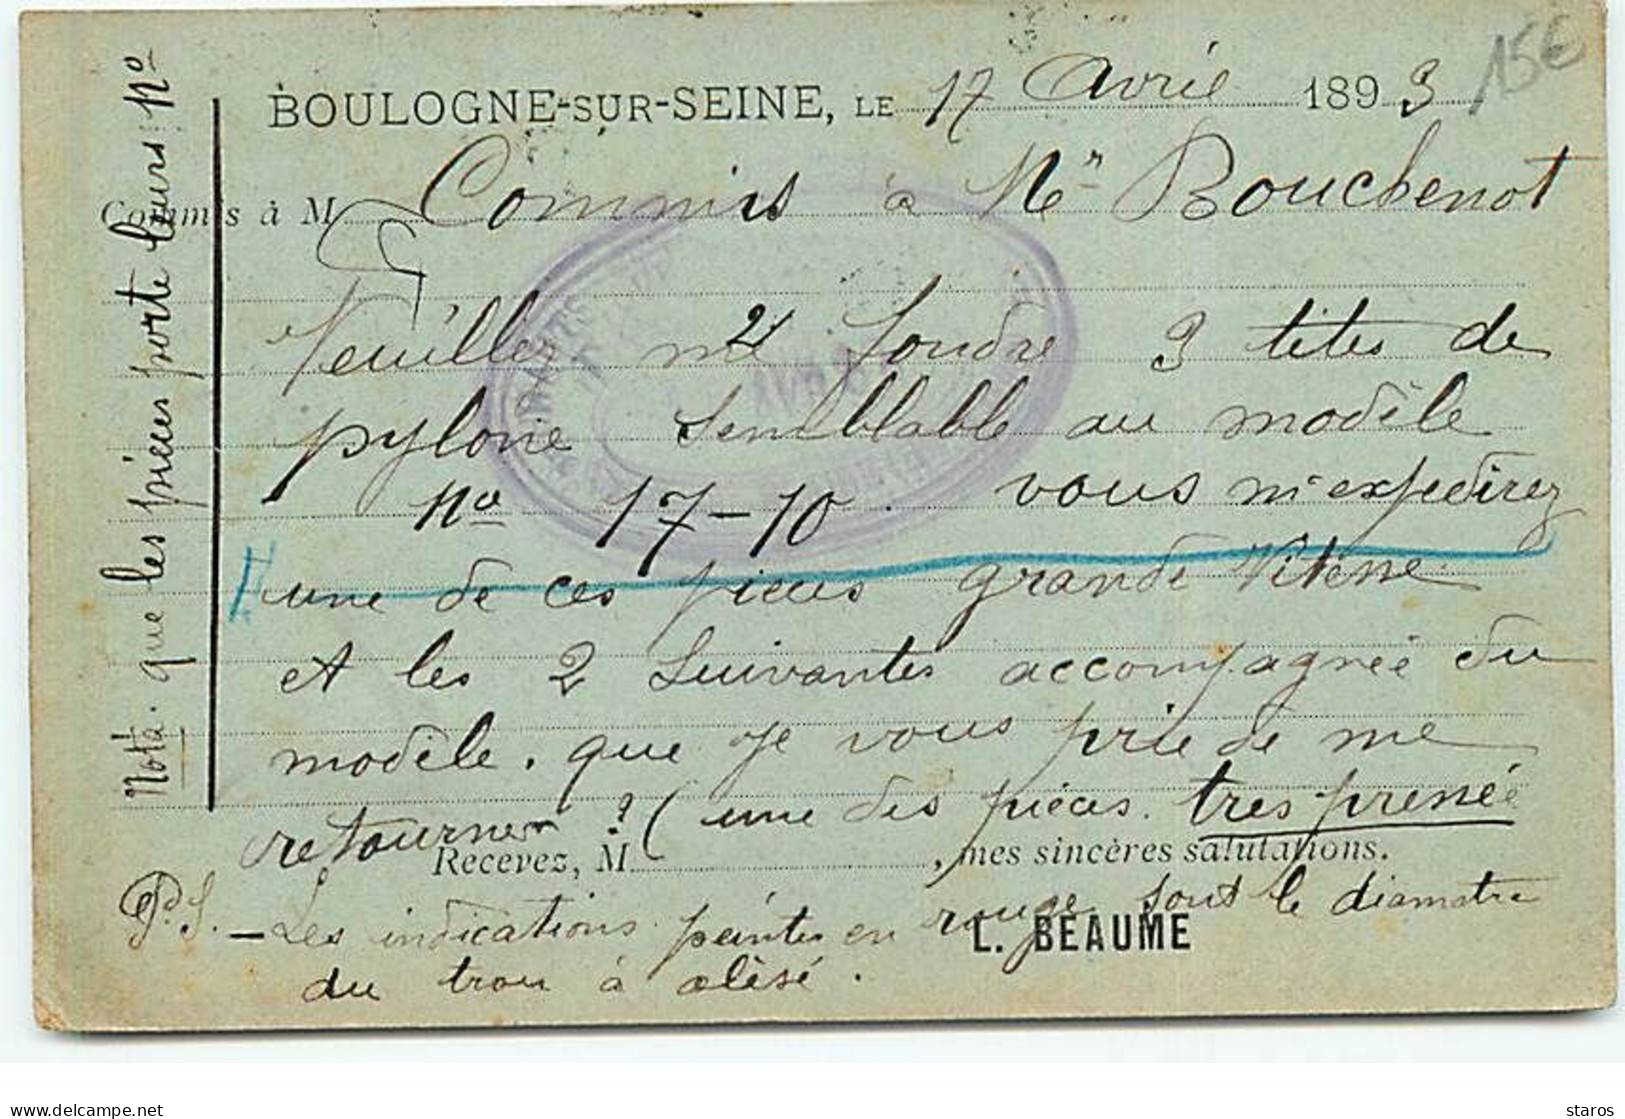 15€
BOULOGNE-SUR-SEINE, LE 17 Avril 1893
Commis à M Commis à Mr Bouchenot
Veuillez me fondre 3 têtes de
pylone semblable au modèle
No 17-10. vous m'expedirez
une de ces pieces grande Vitesse
et les 2 suivantes accompagnée du
modèle. que je vous prie de me
retourner ? ( une des pièces tres pressée
Recevez, M , mes sincères salutations.
P.S. - Les indications peintes en rouge sont le diamatre
L. BEAUME
du trou à alésé.
Nota. que les pièces porte leurs No
delcampe.net
staros